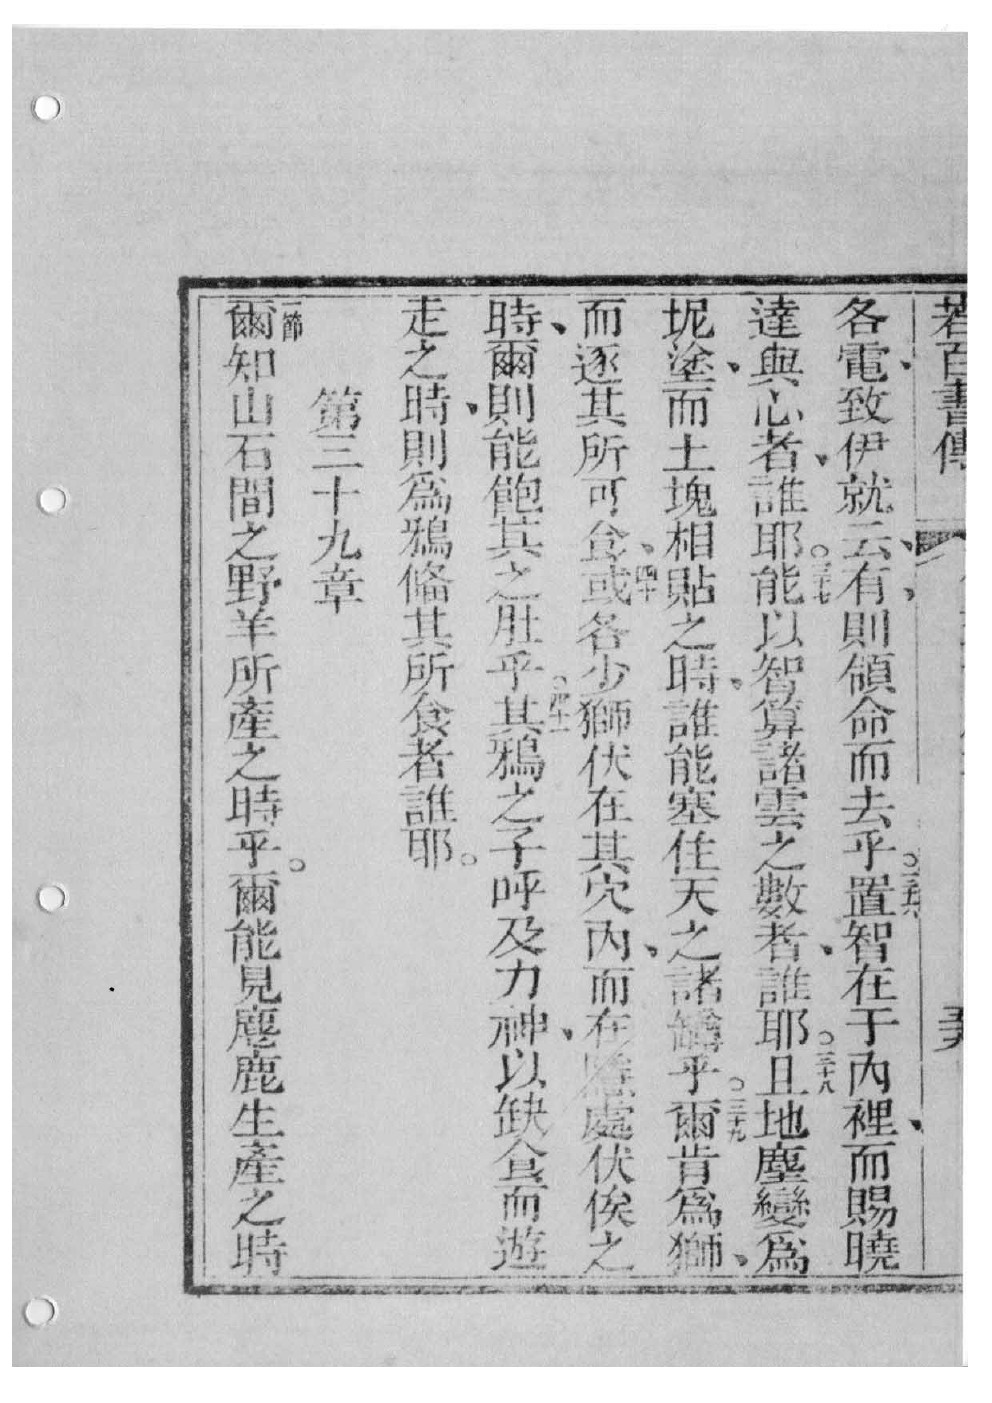 若百書傳 五
各電、致伊就云、有、則領命而去乎。三十六置智在于內裡、而賜曉
達與心者、誰耶。三十七能以智算諸雲之數者、誰耶。三十八且地塵變爲
坭塗、而土塊相貼之時、誰能塞住天之諸罅乎。三十九爾肯爲獅、
而逐其所可食、四十或各少獅伏在其穴內、而在隱處伏俟之
時、爾則能飽其之肚乎。四十一其鴉之子呼及力神、以缺食而遊
走之時、則爲鴉備其所食者誰耶。
第三十九章
一節爾知山石間之野羊所產之時乎。爾能見麀鹿生產之時